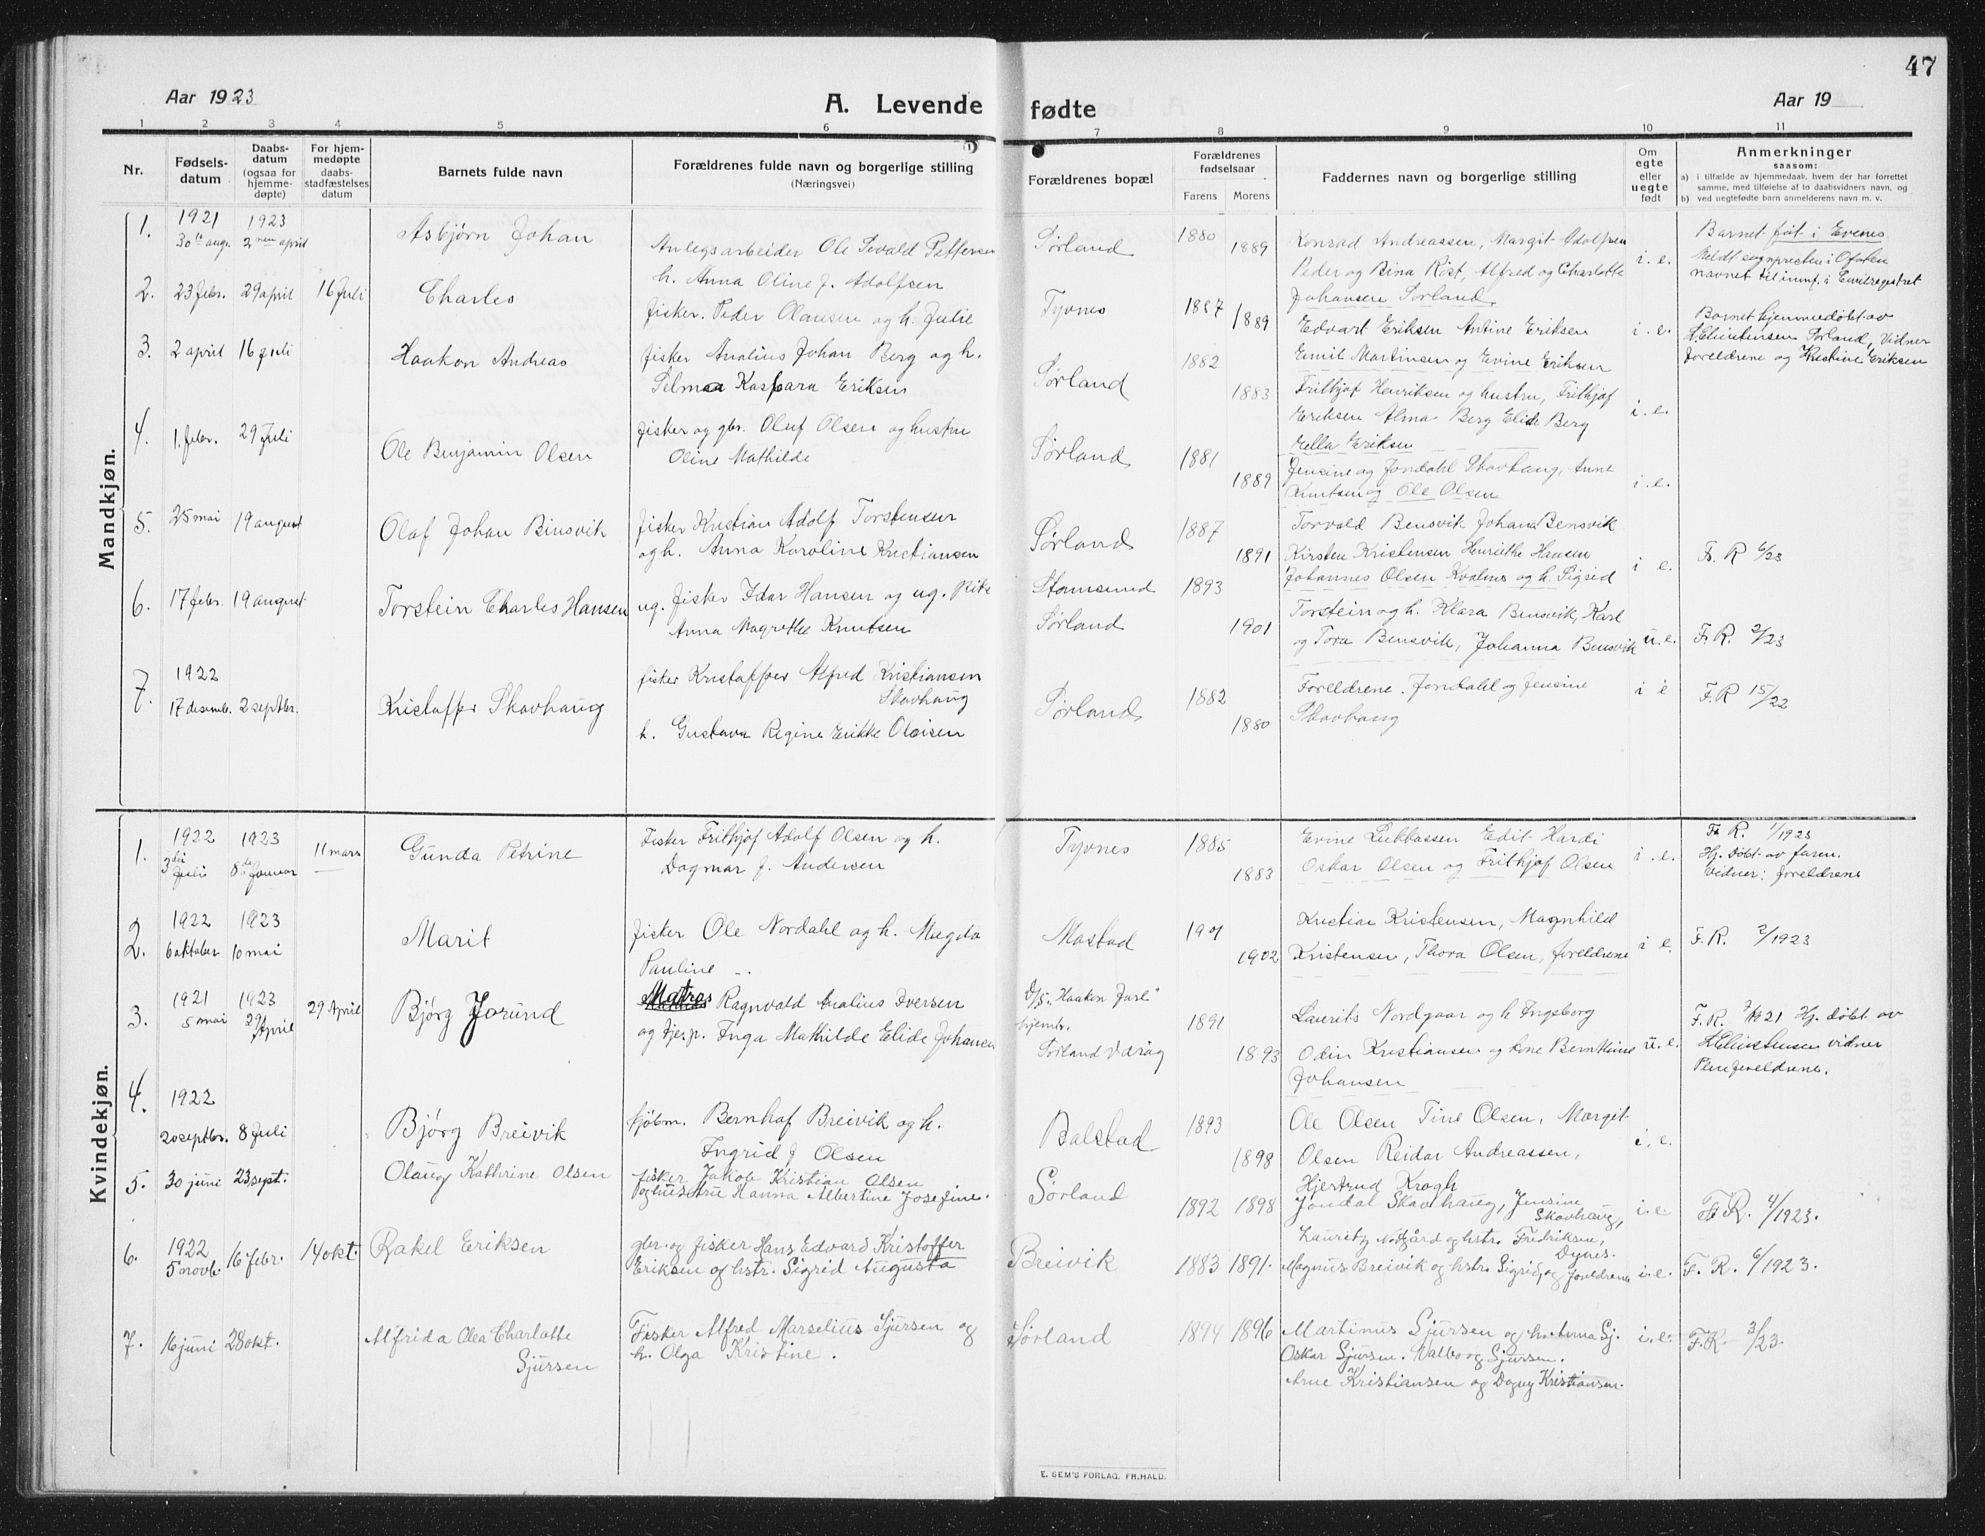 47
Aar 1923
A. Levende fødte
Aar 19
1 2 3 4 5 6 7 8 9 10 11
Nr.
Fødsels-
datum
Daabs-
datum
(ogsaa for
hjemme-
døpte)
For hjem-
medøpte
daabs-
stadfæstelses
datum
Barnets fulde navn
Forældrenes fulde navn og borgerlige stilling
(Næringsvei)
Forældrenes bopæl
Forældrenes
fødselsaar
Farens Morens
Faddernes navn og borgerlige stilling
Om
egte
eller
uegte
født
Anmerkninger
saasom:
a) i tilfælde av hjemmedaab, hvem der har forrettet
samme, med tilføielse af to daabsvidners navn, og
b) ved uegtefødte barn anmelderens navn m. v.
Mandkjøn.
1. 1921 30te aug. 1923 2nen april Asbjørn Johan
Anlegsarbeider Ole Sevald Pettersen
h. Anna Oline f. Adolfsen
Sørland 1880 1889
Konrad Andreassen, Margit Adolfsen
Peder og Bina Røst, Alfred og Charlotte
Johansen Sørland
i. e.
Barnet føt i Evenes
Meldt sognpresten i Ofoten
2. 23 febr. 29 april 16 juli Charles
fisker. Peder Olausen og h. Julie
Tyvnes 1887 1889
Edvart Eriksen Antine Eriksen
Emil Martinsen og Evine Eriksen
i. e.
Barnet hjemmedøbt av
Sørland, Vidner
foreldrene og Kristine Eriksen
3. 2 april 16 juli Haakon Andreas
fisker Analius Johan Berg og h.
Selma Kaspara Eriksen
Sørland 1882 1883
Frithjof Henriksen og hustru, Frithjof
Eriksen Alma Berg Elide Berg
Ella Eriksen
i. e.
4. 1. febr. 29 juli Ole Benjamin Olsen
fisker og gbr. Oluf Olsen og hustru
Oline Mathilde
Sørland 1881 1889
Jensine og Jondahl Skavhaug, Anne
Knutsen og Ole Olsen
i. e.
5. 25 mai 19 august Olaf Johan Binsvik
fisker Kristian Adolf Torstensen
og h. Anna Karoline Kristiansen
Sørland 1887 1891
Torvald Bensvik Johana Bensvik
Kirsten Kristensen Henriethe Hansen
Johannes Olsen Kvalnes og h. Sigrid
i e.
F. R 6/23
6. 17 febr. 19 august Torstein Charles Hansen
ug. fisker Idar Hansen og ug. Pike
Anna Magrethe Knutsen
Stamsund 1893
Sørland 1901
Torstein og h. Klara Bensvik, Karl
og Tora Bensvik, Johanna Bensvik
u. e.
F. R. 2/23
7. 1922 17 desemb. 2 septbr. Kristoffer Skavhaug
fisker Kristoffer Alfred Kristiansen
Skavhaug
h. Gustava Regine Erikke Olaisen
Sørland 1882 1880
Foreldrene. Jondahl og Jensine
Skavhaug
i e
F. R 15/22
Kvindekjøn.
1. 1922 3die juli 1923 8de Januar 11 mars Gunda Petrine
Fisker Frithjof Adolf Olsen og h.
Dagmar f. Andersen
Tyvnes 1885 1883
Evine Lukkassen Edit Hardi
Oskar Olsen og Frithjof Olsen
i. e.
F. R. 1/1923
Hj. døbt av faren.
Vidner: foreldrene
2. 1922 6 oktober 1923 10 mai Marit
fisker Ole Nordahl og h. Magda
Pauline
Mostad 1901 1902
Kristian Kristensen, Magnhild
Kristensen, Thora Olsen, foreldrene
i e.
F. R. 2/1923
3. 1921 5 mai 1923 29 April 29 April Bjørg Jorund
Matros Ragnvald Analius Iversen
og fje. p. Inga Mathilde Elide Johansen
D/S. "Haakon Jarl"
hjemb.
Sørland Værøy
1891 1893
Laurits Nordgaar og h Ingeborg
Odin Kristiansen og kone Bernthine
Johansen
u. e.
F. R. 7/1921 Hj. døbt av
vidner
Pleieforeldrene.
4. 1922 20 septbr. 8 juli Bjørg Breivik
kjøbm. Bernhof Breivik og h.
Ingrid f Olsen
Balstad 1893 1898
Ole Olsen Tine Olsen, Margit
Olsen Reidar Andreassen,
Hjertrud Krogh
i. e.
5. 30 juni 23 sept. Olaug Kathrine Olsen
fisker Jakob Kristian Olsen
og hustru Hanna Albertine Josefine.
Sørland 1892 1898
Jondal Skavhaug, Jensine
Skavhaug,
Lauritz Nodgård og hstr. Fredriksen,
Dynes.
i. e.
F. R. 4/1923.
6. 1922 5 novb. 16 febr. 14 okt. Rakel Eriksen
gbr. og fisker Hans Edvard Kristoffer
Eriksen og hstr. Sigrid Augusta
Breivik 1883 1891.
Magnus Breivik og hstr. Sigrid, og foreldrene
i. e.
F. R. 6/1923.
7. 16 juni 28 okt. Alfrida Olea Charlotte
Sjursen
Fisker Alfred Marselius Sjursen og
h. Olga Kristine.
Sørland 1894 1896
Martinus Sjursen og h. Anna Sj.
Oskar Sjursen. Valborg Sjursen.
Arne Kristiansen og Dagny Kristiansen.
i. e.
F. R. 3/23.
E. SEM'S FORLAG, FR.HALD.